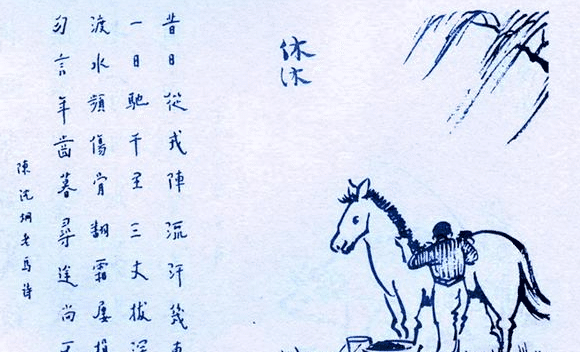 休沐
昔日從戎陣流汗幾東
一日馳千里三丈拔深
渡水頻傷骨翻霜屢損
勿言年齒暮尋途尚不
陳沈炯老馬詩